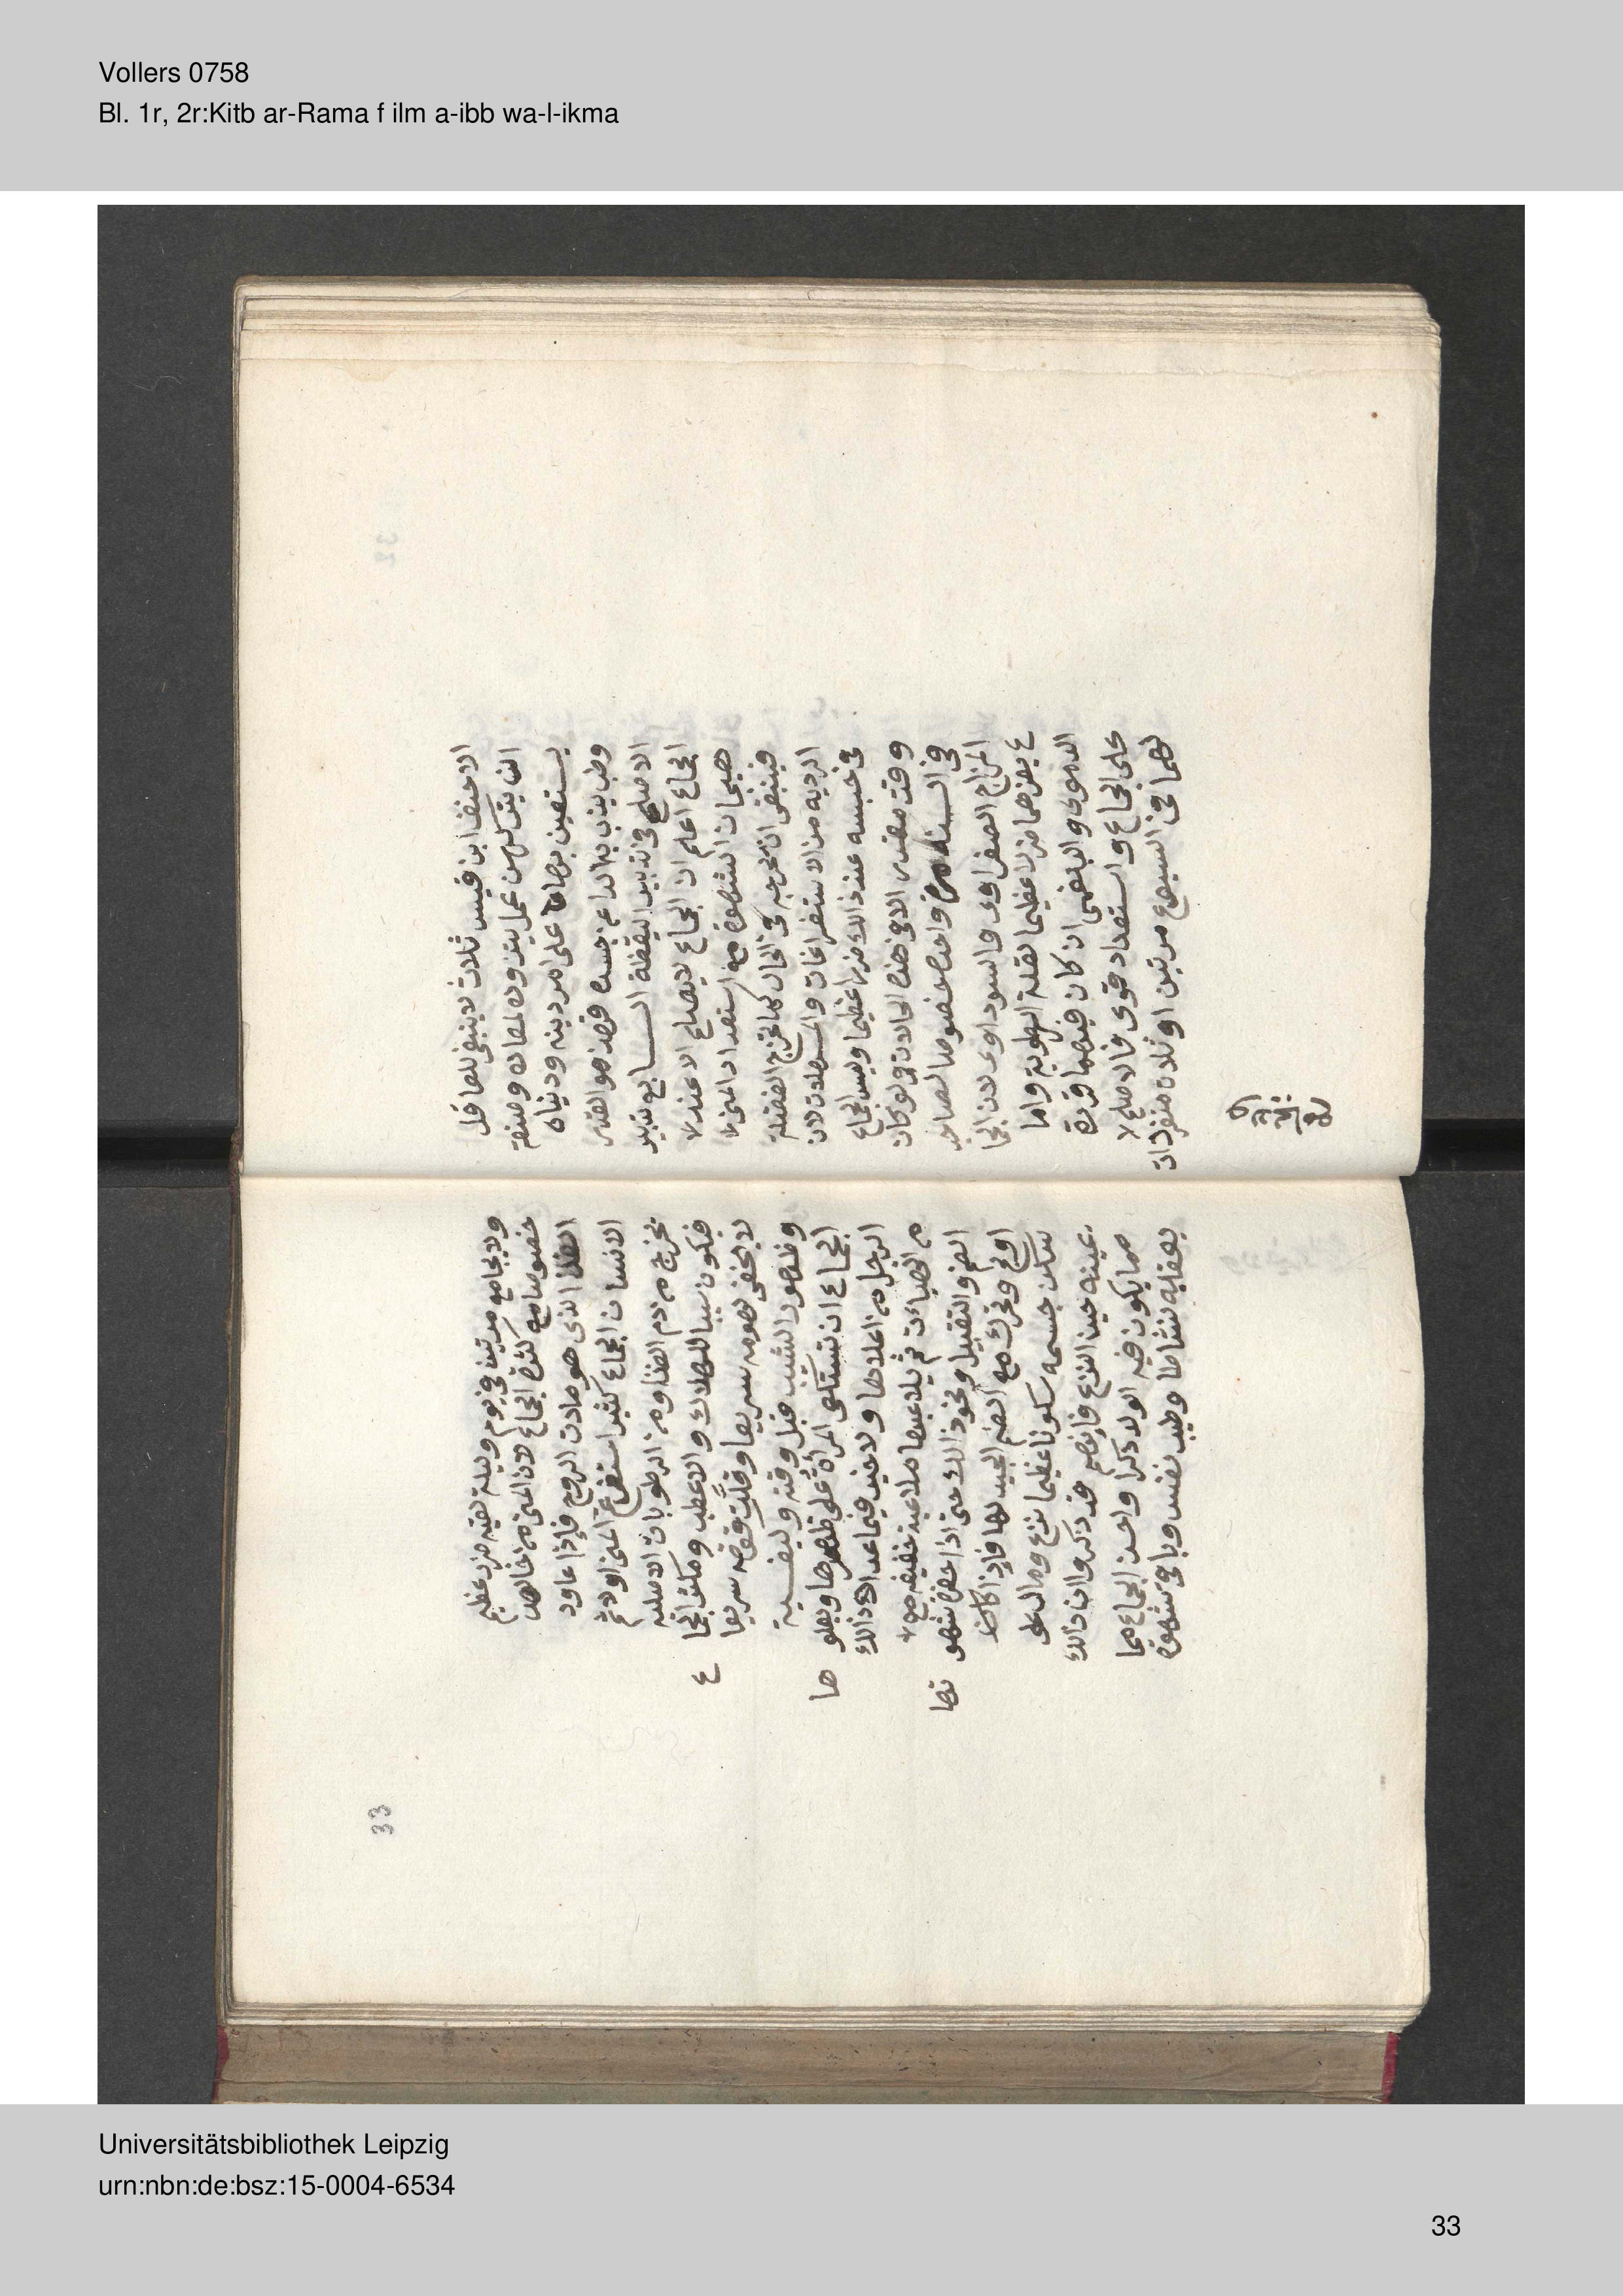 Vollers 0758
Bl. 1r, 2r:Kitb ar-Rama f ilm a-ibb wa-l-ikma
الاحنف ابن قيس ثلاث لا ينبغى للعاقل
ان يتركهن عمل يتزوده لمعاده وصنعة
يستعين بها على امر دينه ودنياه
وطب يذب به الداء عن جسده
الاصلح فى تدبير اليقظة السابع تدبير
الجماع اعلم ان الجماع لا يصلح الا عند
هيجان الشهوة مع استعداد المنى
فينبغى ان يخرجه فى الحال كما تخرج الفضلة
الرديه من الاستفراغات والمسهلات لان
فى حبسه عند ذالك ضرر عظيما وليس للجماع
وقت مقدر الا فى هذه الحالات ولو كان
فى السنه مرة واحده خصوصا لصاحب
المزاج الصفراوى والسوداوى لان الجما
ع يضرهما ضررا عظيما لقلة الرطوبة واما
الدموى والبلغمى ان كان فيهما قوة
على الجماع واستعداد قوى فالاصلح لا
لهما فى السبوع مرتين او ثلاث متفرقات
ولا يجامع مرتين فى يوم وليلة ففيه ضرر عظيم
خصوصا مع كثرة الجماع لان المنى من خالص
الغذا الذى هو مادت الروح فإذا عاود
الانسان الجماع كثيرا استفرغ المنى اولا ثم
يخرج من دم الغذا ومن الرطوبات الاصليه
فيكون سببا للهلاك والاعطب ومكثر الجما
ع
لا يخفى هرمه سريعا وقلّت قوته سريعا
وظهور الشيب قبل وقته وكيفية
الجماع ان تستلقى المرأة على ظهرها ويعلو
ها
الرجل من اعلاها ولا خير فيما عدا ذالك
من الهيات ثم يلاعبها ملاعبة خفيفه مع
الضم والتقبيل ونحو ذالك حتى اذا حضر شهو
تها
اولج وتحرك مع الضم الجيد لها فإذا كانت
سكن جسمه سكونا عظيما ونزع ومال على
يمينه حين النزع فإنهم قد ذكروا ان ذالك
مما يكون فيه الولد ذكرا واحسن الجماع مما
يعقبه نشاط وطيب نفس وباقى شهوة
33
Universitätsbibliothek Leipzig
urn:nbn:de:bsz:15-0004-6534
33